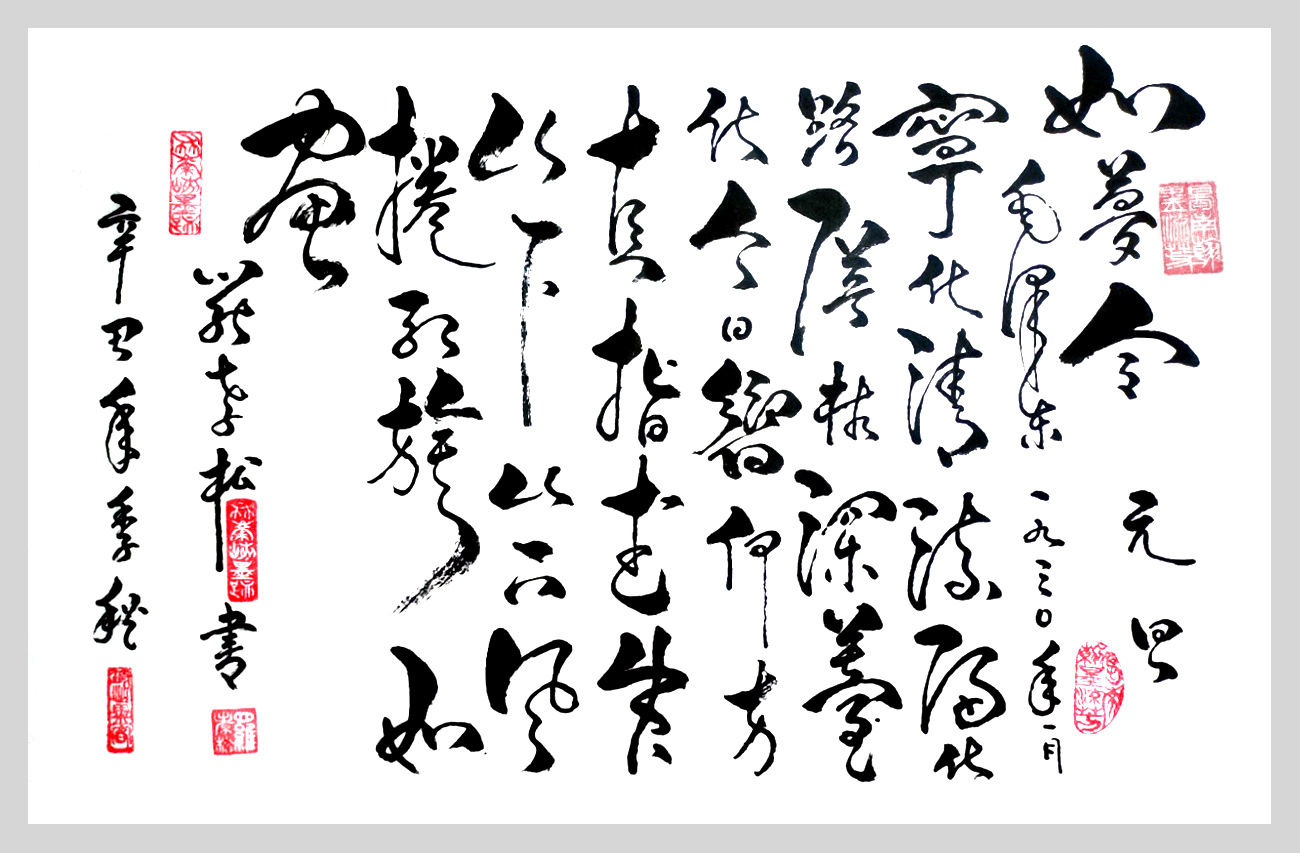 如夢令 元旦
毛澤東 一九三〇年一月
寧化清流歸化
路隘林深苔
滑今日嚮何方
直指武夷
山下山下風
捲紅旗如
畫
羅孝松書
辛丑年季秋